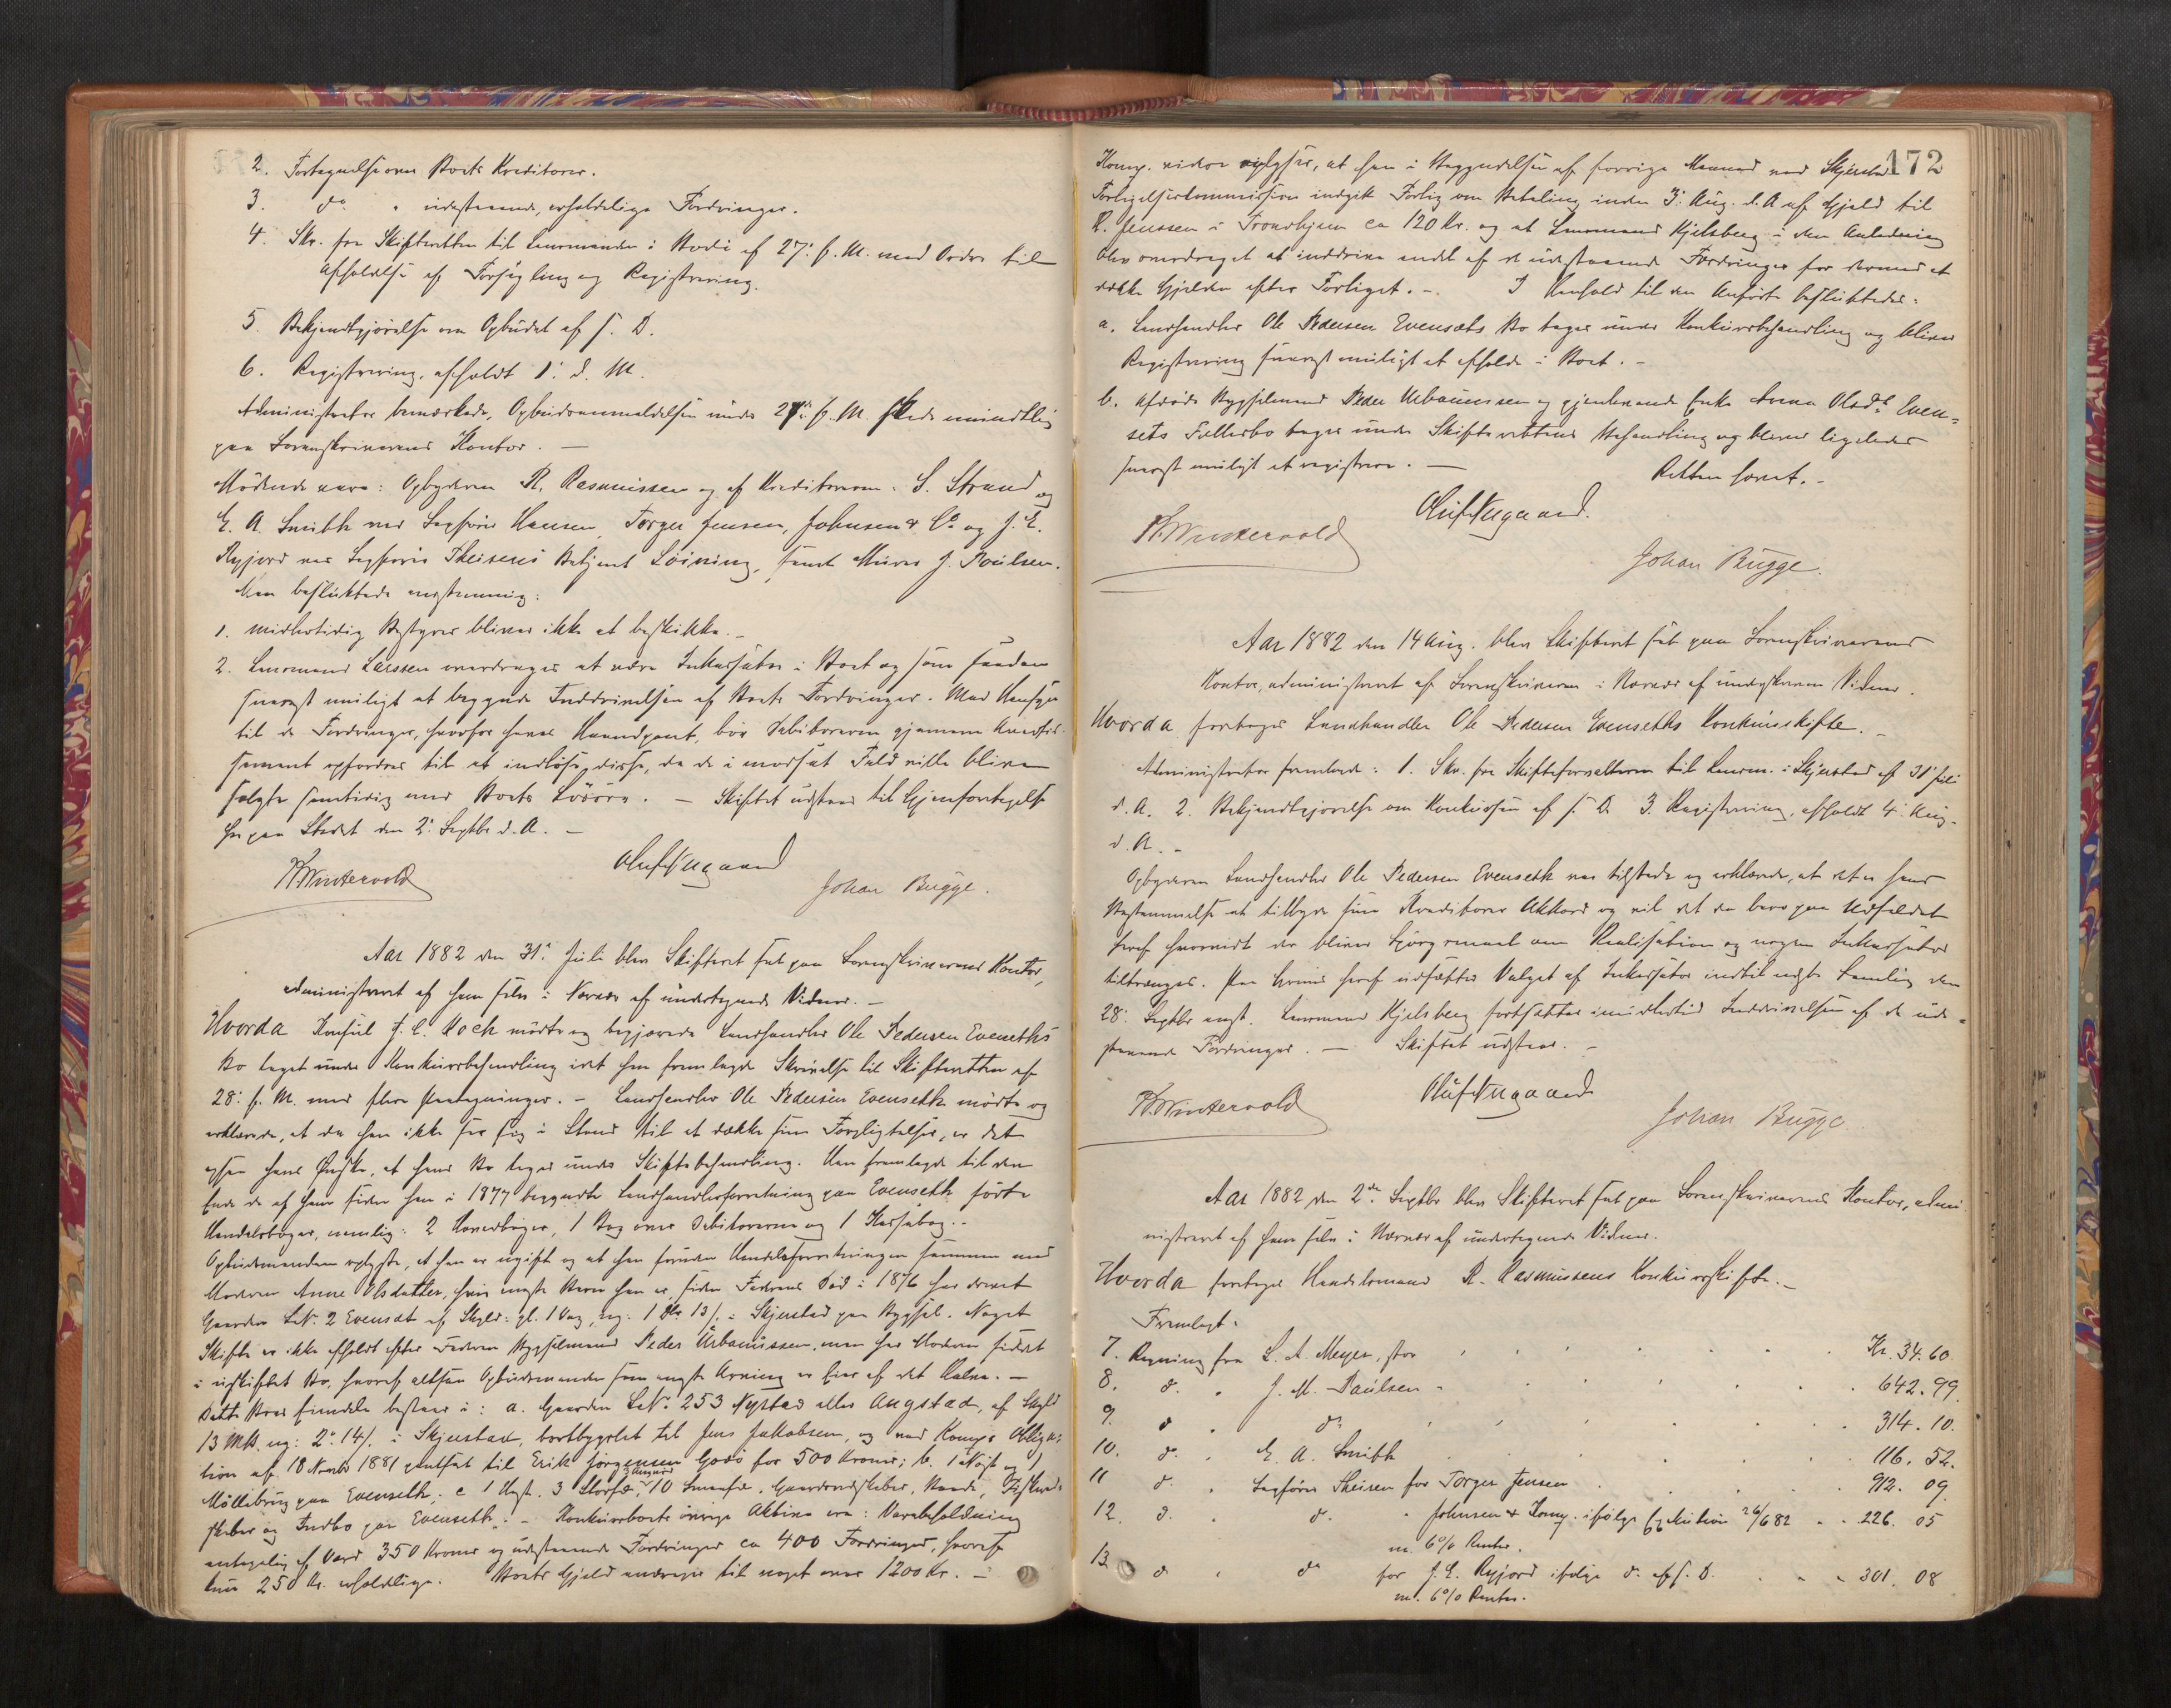 2. Fortegnelse over Boets Kreditorer.
3. do " udestaaende, erholdelige Fordringer.
4. Skr. fra Skifteretten til Lensmanden i Bodø af 27. f. M. med Ordre til
Afholdelse af Forsegling og Registrering.
5. Bekjendtgjørelse om Opbudet af s. D.
6. Registrering, afholdt 1. d. M.
Administrator bemærkede, Opbudsanmeldelsen under 27. f. M. skede mundtlig
paa Sorenskriverens Kontor. —
Mødende vare: Opbyderen R. Rasmussen og af Kreditorerne: S. Strand og
E. A. Smith ved Sagfører Hansen, Torger Jensen, Johnsen & Co og J. E.
Ryjord ved Sagfører Theisens Betjent Løining, samt Murer J. Poulsen.
Man besluttede enstemmig:
1. midlertidig Bestyrer bliver ikke at beskikke. —
2. Lensmand Larssen overdrages at være Inkassator i Boet og som saadan
snarest muligt at begynde Inddrivelsen af Boets Fordringer. Med Hensyn
til de Fordringer, hvorfor haves Haandpant, bør Debitorerne gjennem Avertis-
sement opfordres til at indløse disse, da de i modsat Fald ville blive
solgte samtidig med Boets Løsøre. — Skiftet udstaar til Gjenforetagelse
her paa Stedet den 2. Septbr d. A. —
Wintervold Oluf Aagaard Johan Bugge.
Aar 1882 den 31. Juli blev Skifteret sat paa Sorenskriverens Kontor,
administreret af ham selv i Nærvær af undertegnede Vidner. —
Hvorda Konsul J. C. Koch mødte og begjærede Landhandler Ole Pedersen Evenseths
Bo taget under Konkursbehandling idet han fremlagde Skrivelse til Skifteretten af
28. f. M. med flere Paategninger. — Landhandler Ole Pedersen Evenseth mødte og
erklærede, at da han ikke ser sig i Stand til at dække sine Forpligtelser, er det
ogsaa hans Ønske, at hans Bo tages under Skiftebehandling. Han fremlagde til den
Ende de af ham siden han i 1877 begyndte Landhandlerforretning paa Evenseth førte
Handelsbøger, nemlig: 2 Hovedbøger, 1 Bog over Debitorerne og 1 Kassabog. —
Opbudsmanden oplyste, at han er ugift og at han foruden Handelsforretningen sammen med
Moderen Anne Olsdatter, hvis eneste Barn han er, siden Faderens Død i 1876 har drevet
Gaarden LNo. 2 Evensæt af Skyld: gl. 1 Vog, ny: 1 Dlr 13 s. i Skjerstad paa Bygsel. Noget
Skifte er ikke afholdt efter Faderen Bygselmand Peder Urbanussen, men har Moderen siddet
i uskiftet Bo, hvoraf altsaa Opbudsmanden som eneste Arving er Eier af det Halve. —
Dette Boes Eiendele bestaar i: a. Gaarden LNo. 253 Nystad eller Augstad, af Skyld
13 Mk. ny: 2. 14 s. i Skjerstad, bortbygslet til Jens Jakobsen, og ved Komp's Obliga-
tion af 18 Novbr 1881 pantsat til Erik Jørgensen Godø for 500 Kroner; b. 1 Nøst og 1
Møllebrug paa Evenseth; c 1 Hest, 3 Storfæ, 10 Smaafæ, Gaardsredskaber, Baade, Fiskered-
skaber og Indbo paa Evenseth. — Konkursboets øvrige Aktiva er: Varebeholdning
antagelig af Værd 350 Kroner og udestaaende Fordringer ca 400 Fordringer, hvoraf
kun 250 Kr. erholdelige. Boets Gjeld andrager til noget over 1200 Kr. —
172
Komp. videre oplyser, at han i Begyndelsen af forrige Maaned ved Skjerstad
Forligelseskommission indgik Forlig om Betaling inden 3. Aug. d. A af Gjeld til
R. Jenssen i Trondhjem ca 120 Kr. og at Lensmand Kjelsberg i den Anledning
blev overdraget at inddrive endel af de udestaaende Fordringer for dermed at
dække Gjelden efter Forliget. — I Henhold til det Anførte besluttedes:
a. Landhandler Ole Pedersen Evensæts Bo tages under Konkursbehandling og bliver
Registrering snarest muligt at afholde i Boet. —
b. Afdøde Bygselmand Peder Urbanussen og gjenlevende Enke Anna Olsdr. Even-
sets Fællesbo tages under Skifterettens Behandling og bliver ligeledes
snarest muligt at registrere. — Retten hævet. —
Wintervold Oluf Aagaard. Johan Bugge.
Aar 1882 den 14 Aug. blev Skifteret sat paa Sorenskriverens
Kontor, administreret af Sorenskriveren i Nærvær af underskrevne Vidner.
Hvorda foretoges Landhandler Ole Pedersen Evenseths Konkursskifte. —
Administrator fremlagde: 1. Skr. fra Skifteforvalteren til Lensm. i Skjerstad af 31 Juli
d. A. 2. Bekjendtgjørelse om Konkursen af s. D. 3. Registrering, afholdt 4. Aug.
d. A. —
Opbyderen Landhandler Ole Pedersen Evenseth var tilstede og erklærede, at det er hans
Bestemmelse at tilbyde sine Kreditorer Akkord og vil det da bero paa Udfaldet
heraf hvorvidt der bliver Spørgsmaal om Realisation og nogen Inkassator
tiltrænges. Paa Grund heraf udsættes Valget af Inkassator indtil næste Samling den
28. Septbr næst. Lensmand Kjelsberg fortsætter imidlertid Inddrivelsen af de ude-
staaende Fordringer. — Skiftet udstaar. —
Wintervold Oluf Aagaard Johan Bugge
Aar 1882 den 2den Septbr blev Skifteret sat paa Sorenskriverens Kontor, admi-
nistreret af ham selv i Nærvær af undertegnede Vidner.
Hvorda foretoges Handelsmand R. Rasmussens Konkursskifte. —
Fremlagt:
7. Regning fra L. A. Meyer, stor Kr. 34.60.
8. do. " J. M. Paulsen 642.99
9. do " do 314.10.
10. do. " E. A. Smith 116.52.
11 do. " Sagfører Theisen for Torger Jensen 912.09
12. do. " do. " Johnsen & Komp. ifølge Exekution 26/6 82 226.05
m. 6% Renter.
13. do " do for J. E. Ryjord ifølge do af s. D. 301.08
m. 6% Renter.